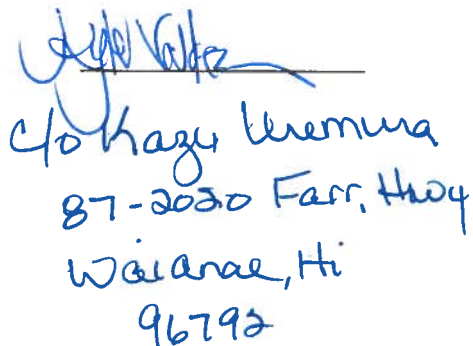 Kyle Valdez
c/o Kazu Uemura
87-2020 Farr. Hwy
Waianae, Hi
96792